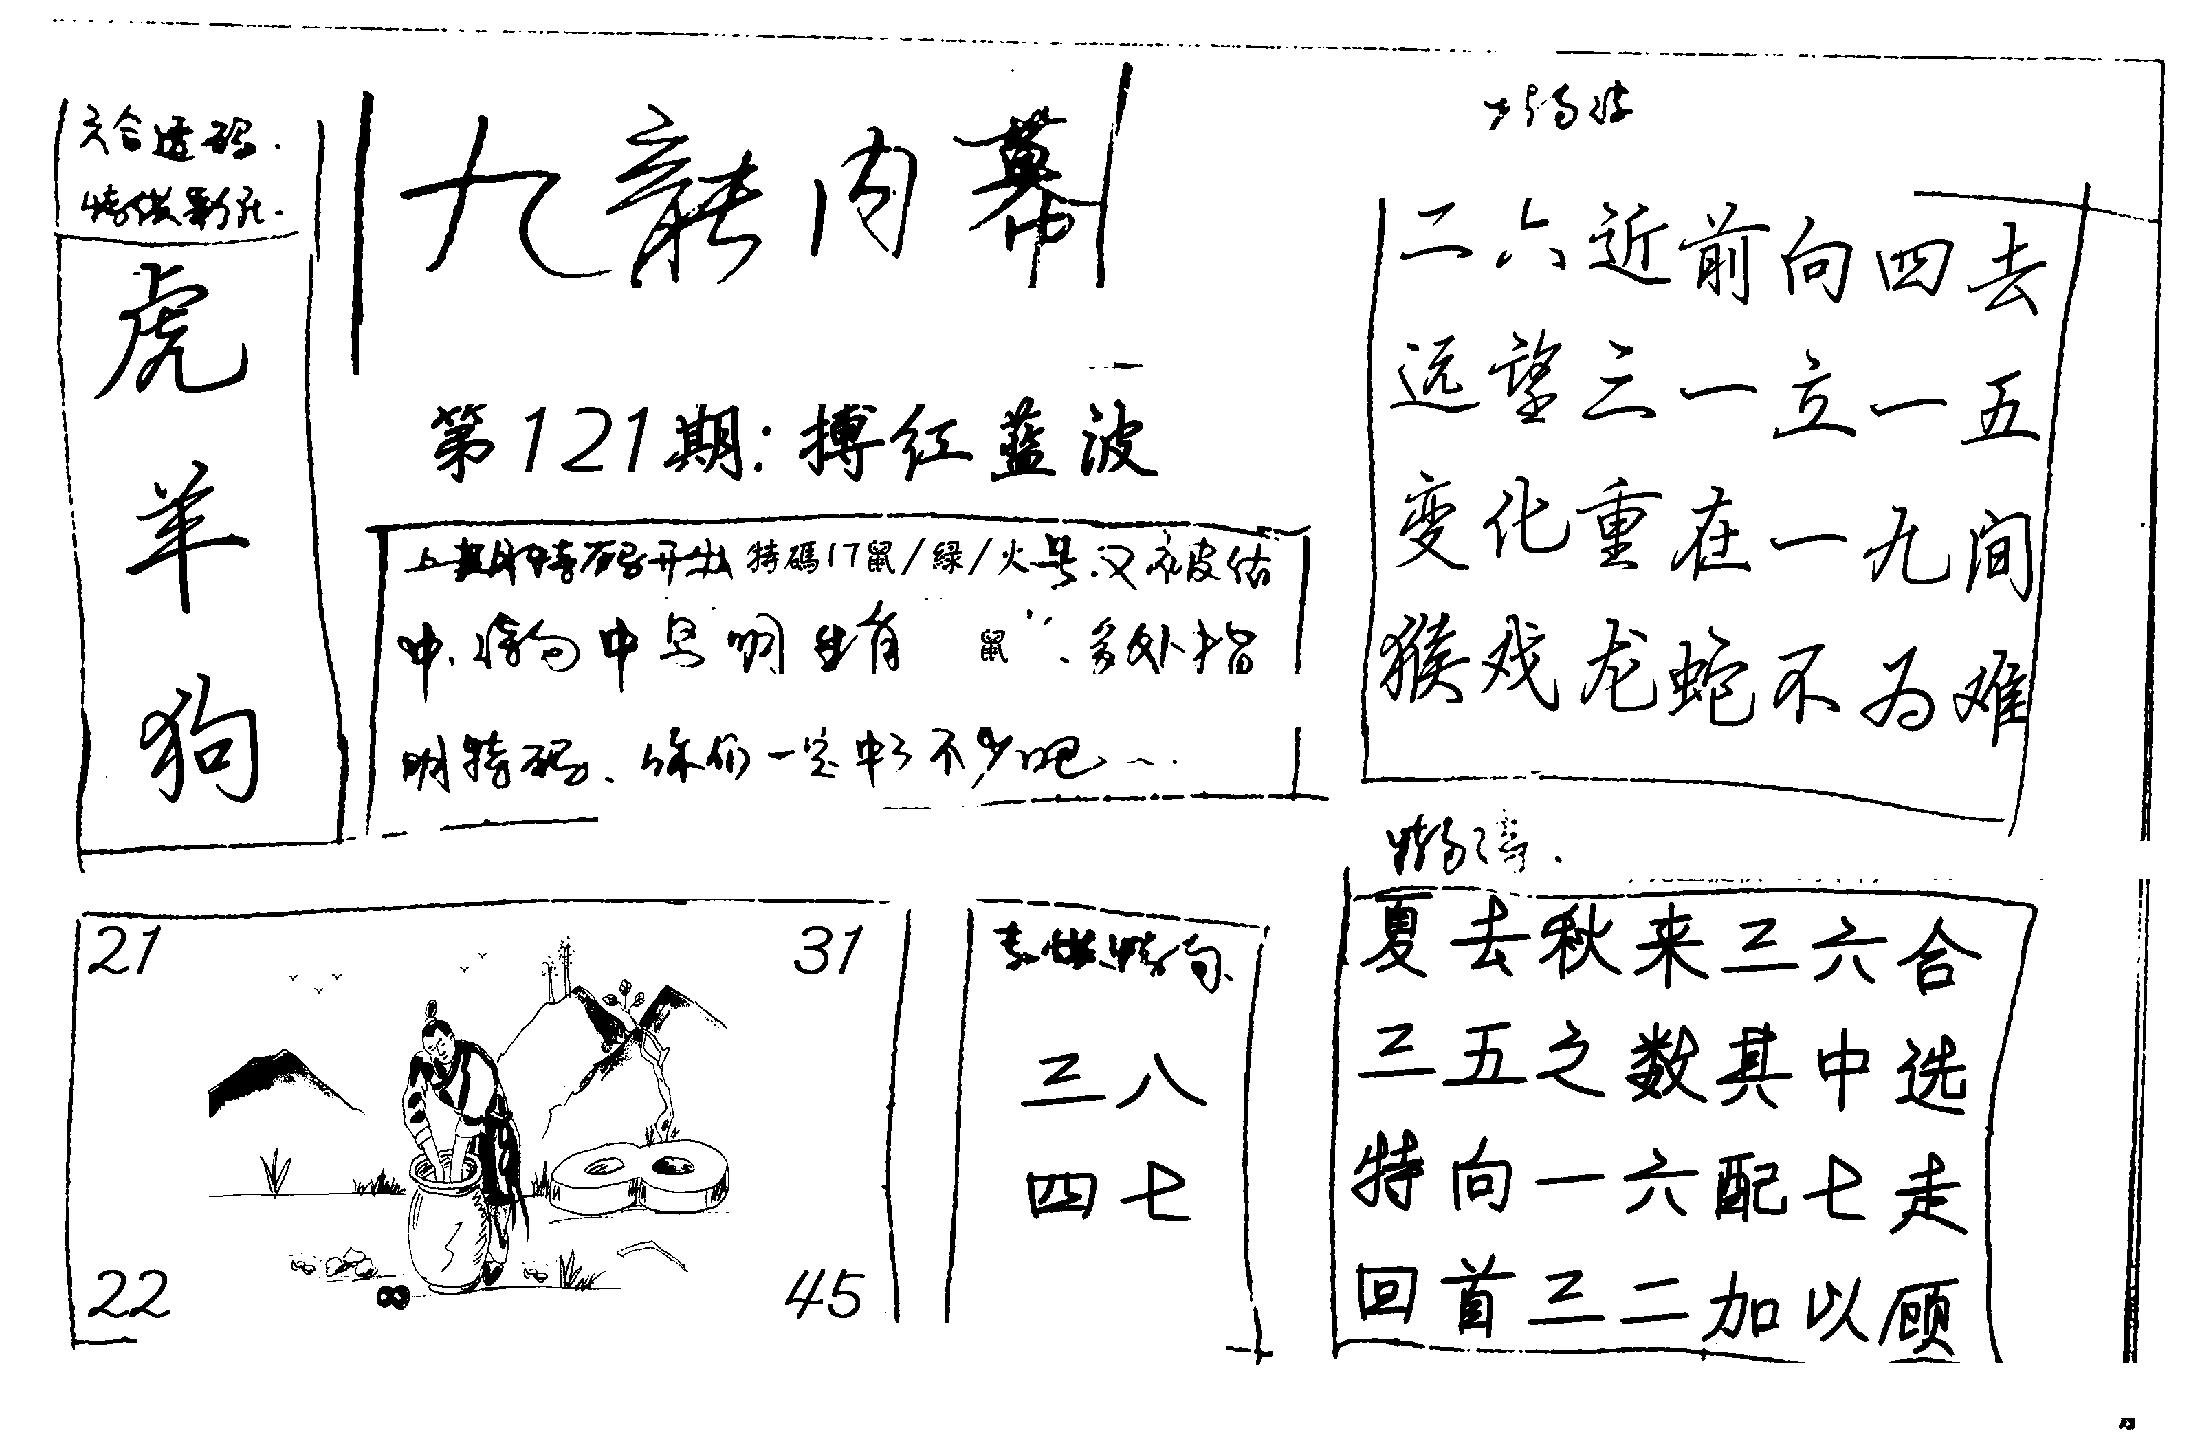 六合透码.
虎
羊
狗
九龍内幕
第121期:搏红蓝波
上期特码开出 特碼17鼠/緑/火号.又被估
中.诗句中 明 生肖 鼠".多处指
明特码.你们一定中了不少吧
二六近前向四去
远望三一立一五
变化重在一九间
猴戏龙蛇不为难
21
31
22
45
三八
四七
夏去秋来三六合
三五之数其中选
特向一六配七走
回首三二加以顾